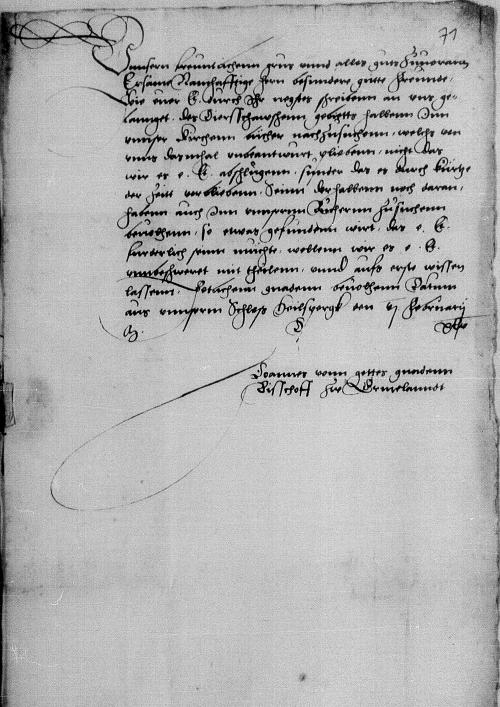 71
Unnsern freuntlichenn grus unnd alles guts zuvorann
Ersame Namhafftige hern besundere gutte freunde.
Wie euer E. durch ihr negstes schreiben an uns ge-
langet, des halbenn Inn
unnser kirchenn bucher nachzusuchenn, welchs von
uns dasmhal unbeantwurt plieben, nicht das
wir es e. E. abschlugenn, sunder das es durch kurtze
der zeitt verblieben. Seint derhalbenn noch daran,
habenn auch Inn unsernn Buchernn zusuchenn
bevolhenn, so etwas gefundenn wirt, das e. E.
furderlich seinn muchte, wollenn wir es e. E.
unbeschweret mit theilenn, unnd auffs erste wissen
lassenn. gnadenn bevolhenn Datum
aus unnserm Schloß Heilsbergk den vj February
Joannes vonn gottes gnadenn
Bisschoff zur Ermelanndt